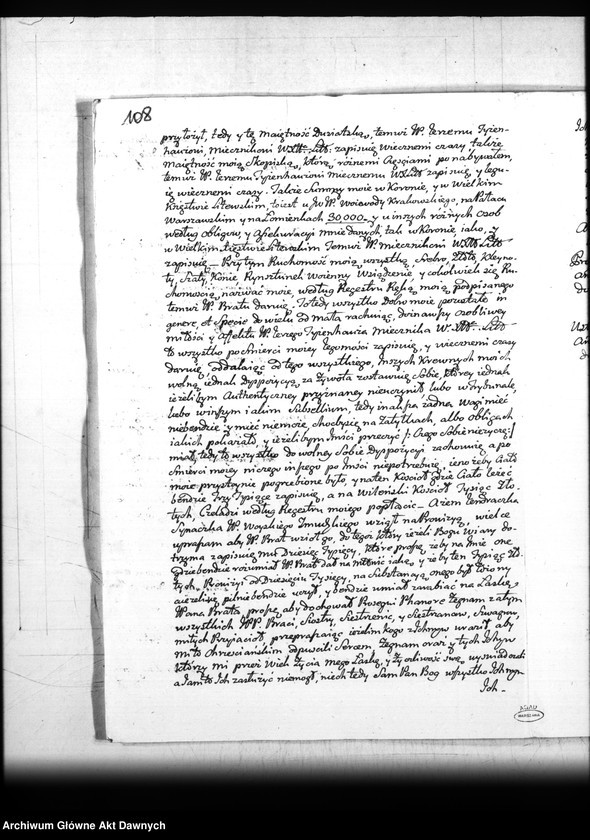 108
przyłożył, tedy y tę Maiętność Dusiatską, temuż W. Jerzemu Tyzen-
hauzowi, Miecznikowi WXttt. Litt. zapisuię wiecznemi czasy także
Maiętność moią Skopiską, którą różnemi Częściami ponabywałem,
temuż W. Jerzemu Tyzenhauzowi Miecznemu WXLitt zapisuię y legu-
ię wiecznemi czasy. Także Summy moie w Koronie, y w Wielkim
Xięztwie Litewskim, to iest u JoW. Woiewody Krakowskiego, na Pałacu
Warszawskim y na Łomienkach 30,000 y u inszych różnych osob
według obligów, y Assekuracyi mnie danych, tak w Koronie iako, y
w Wielkim Xięztwie Litewskim Temuż W. Miecznikowi WXtt Litt
zapisuię — Przy tym Ruchomość moią wszystką Srebro, Złoto, Kleyno-
ty, Szaty, Konie Rynsztunek Woienny Wsiądzenie y cokolwiek się Ru-
chomością nazwać może, według Regestru Ręką moią podpisanego
temuż W. Bratu daruię. To tedy wszystko Dobro moie pozostałe in
genere, et Specie do wielu od mała rachuiąc, do wiary osobliwey
miłości y Affektu W. Jerzego Tyzenhauza Miecznika W Xtt. Litt
to wszystko po Śmierci moiey Jegomości zapisuię, y wiecznemi czasy
daruię, oddalaiąc od tego wszystkiego, Inszych Krewnych moich
wolną iednak Dyspozycyą za żywota zostawuię Sobie, którey iednak
ieżelibym Authentyczney przyznaney nieuczynił lubo w Trybunale
Lubo w inszym iakim Subsellium, tedy inaksza żadna Wagi mieć
niebendzie y mieć niemoże, choćbysię na Zapisach, albo obligach
iakich pokazała, y ieżelibym Imści przeżyć /: Czego Sobie nieżyczę:/
miał, tedy to wszystko do wolney Sobie Dyspozycyi zachowuię a po
Śmierci moiey niczego inszego po Imści niepotrzebuię, ieno żeby Ciało
moie przystoynie pogrzebione było, y na ten Kosciół gdzie Ciało leżeć
bendzie Trzy Tysiące zapisuię, a na Witoński Kosciół Tysiąc Zło-
tych, Czeladzi według Regestru moiego popłacić — Ażem Jendraszka
Synaczka W. Woyskiego Zmudzkiego wziął na Prowizyą, wielce
upraszam aby W. Brat wziął go, do tego który ieżeli Bogu Wiary do-
trzyma zapisuię mu Dziesięć Tysięcy, które proszę żeby na Imie one
gdzie bendzie rozumiał W. Brat dał na
tych, Prowizyi od Dziesięciu Tysięcy, na Substancyą onego był łożony
a ieżeli się pilnie bendzie uczył, y bendzie umiał zarabiać na Łaskę
W Pana Brata, proszę, aby dochował Zegnam zatym
wszystkich WW. Braci, Siostry, Siestrzenic, y Siestrzanow, Szwagrow,
miłych Przyiaciół, przepraszaiąc ieżelim kogo z Ichmciow uraził, aby
mi to Chrzesciańskim odpuscili Sercem. Zegnam oraz y tych Ichmciow
którzy mi przez Wiek Życia mego Łaskę, y Życzliwość swą wyświadczali
a Iam to Ich zasłużyć niemogł, niech tedy Sam Pan Bog wszystko Ichmciom
Ich -
AGAD
WARSZAWA
Archiwum Główne Akt Dawnych